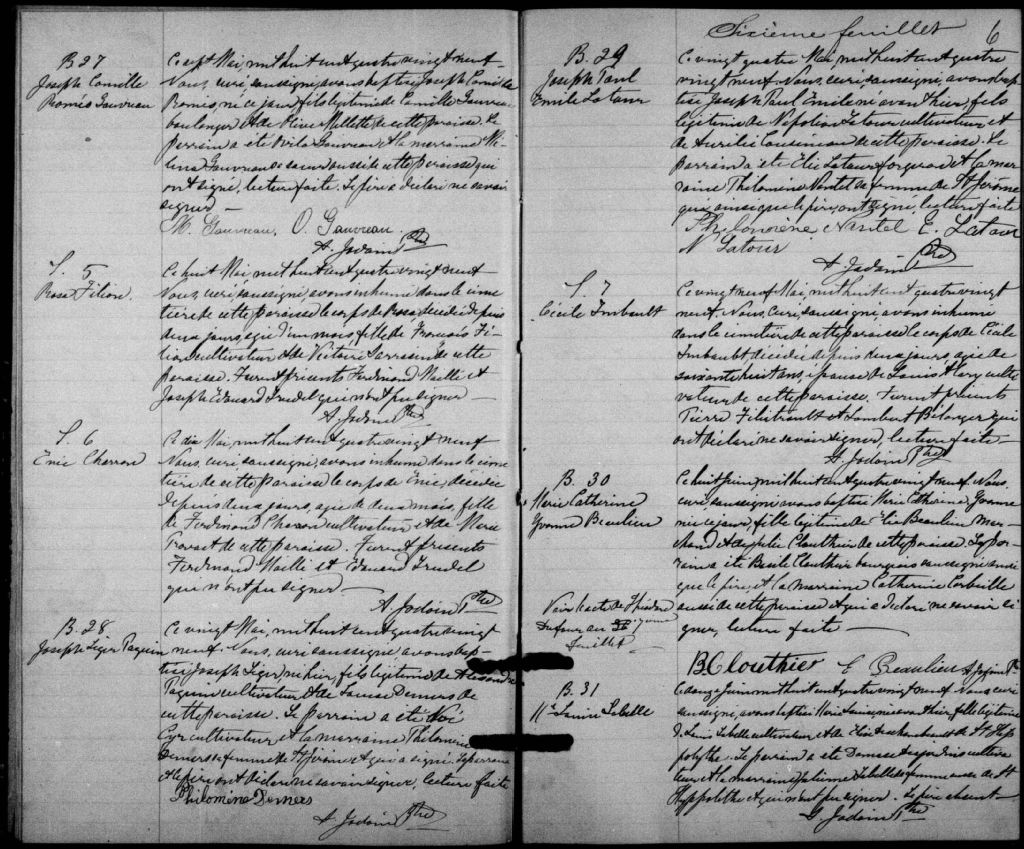 B 27
Joseph Camille
Romeo Gauvreau
Ce sept Mai, mil huit cent quatre vingt neuf
Nous, curé, soussigné, avons baptisé Joseph Camille
né ce jour, fils légitime de Camille Gauvreau
boulanger et de Olive Mellette de cette paroisse. Le
parrain a été Gauvreau et la marraine
Gauvreau sa sœur aussi de cette paroisse qui
ont signé, lecture faite. Le père a déclaré ne savoir
signer —
M. Gauvreau, O. Gauvreau.
A. Jodoin Ptre
S. 5
Rosa Filion.
Ce huit Mai, mil huit cent quatre vingt neuf
Nous, curé, soussigné, avons inhumé dans le cime
tière de cette paroisse le corps de Rosa décédée depuis
deux jours, agée d'un mois, fille de Francois Fi
lion cultivateur et de Victoire Sarrasin de cette
paroisse. Furent présents Ferdinand Maillé et
Joseph Edouard Trudel qui n'ont pu signer —
A. Jodoin Ptre
S. 6
Charron
Ce dix Mai, mil huit cent quatre vingt neuf
Nous, curé, soussigné, avons inhumé dans le cime
tière de cette paroisse le corps de décédée
depuis deux jours, agée de deux mois, fille
de Ferdinand Charron cultivateur et de Marie
de cette paroisse. Furent présents
Ferdinand Maillé et Edouard Trudel
qui n'ont pu signer —
A. Jodoin Ptre
B. 28
Joseph Liger Paquin
Ce vingt Mai, mil huit cent quatre vingt
neuf. Nous, curé, soussigné avons bap
tisé Joseph Liger, né hier, fils légitime de
Paquin cultivateur et de Louise Demers de
cette paroisse. Le parrain a été
Cyr cultivateur et la marraine Philomène
Demers sa femme de St Jérôme et qui a signé. Le parrain
et le père ont déclaré ne savoir signer, lecture faite
Philomène Demers
A. Jodoin Ptre
Sixième feuillet 6
B. 29
Joseph Paul
Emile Latour
Ce vingt quatre Mai, mil huit cent quatre
vingt neuf. Nous, curé, soussigné, avons bap
tisé Joseph Paul Emile né avant hier, fils
légitime de Napoléon Latour cultivateur et
de Aurélie de cette paroisse. Le
parrain a été Elie Latour forgeron et la mar
raine Philomène Nantel sa femme de St Jérôme
qui, ainsi que le père, ont signé, lecture faite
Philomène Nantel E. Latour
N Latour
A Jodoin Ptre
S. 7
Cécile Imbault
Ce vingt neuf Mai, mil huit cent quatre vingt
neuf. Nous, curé, soussigné, avons inhumé
dans le cimetière de cette paroisse le corps de Cécile
Imbault décédée depuis deux jours, agée de
soixante huit ans, épouse de Louis culti
vateur de cette paroisse. Furent présents
Pierre Filiatrault et Lambert Bélanger qui
ont déclaré ne savoir signer, lecture faite —
A. Jodoin Ptre
B. 30
Marie Catherine
Yvonne Beaulieu
Voir l'acte de
Dufour au
feuillet —
Ce huit Juin, mil huit cent quatre vingt neuf. Nous,
curé, soussigné, avons baptisé Marie Catherine Yvonne
née ce jour, fille légitime de Elie Beaulieu mar
chand et de Clouthier de cette paroisse. Le par
rain a été Clouthier bourgeois soussigné ainsi
que le père, et la marraine Catherine Corbeille
aussi de cette paroisse et qui a déclaré ne savoir si
gner, lecture faite —
B. Clouthier E Beaulieu A Jodoin Ptre
B. 31
Mie Louise Labelle
Ce onze Juin mil huit cent quatre vingt neuf. Nous curé
soussigné, avons baptisé Marie Louise née avant hier, fille légitime
de Louis Labelle cultivateur et de de St Hip
polythe. Le parrain a été cultiva
teur et la marraine Labelle sa femme de St
Hyppolithe et qui n'ont pu signer. Le père absent —
A. Jodoin Ptre